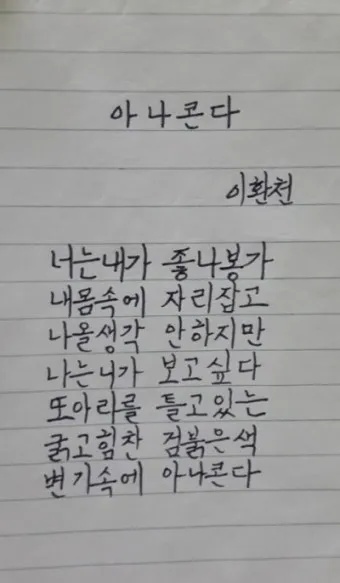 아나콘다
이환천
너는내가 좋나봉가
내몸속에 자리잡고
나올생각 안하지만
나는니가 보고싶다
또아리를 틀고있는
굵고힘찬 검붉은색
변기속에 아나콘다